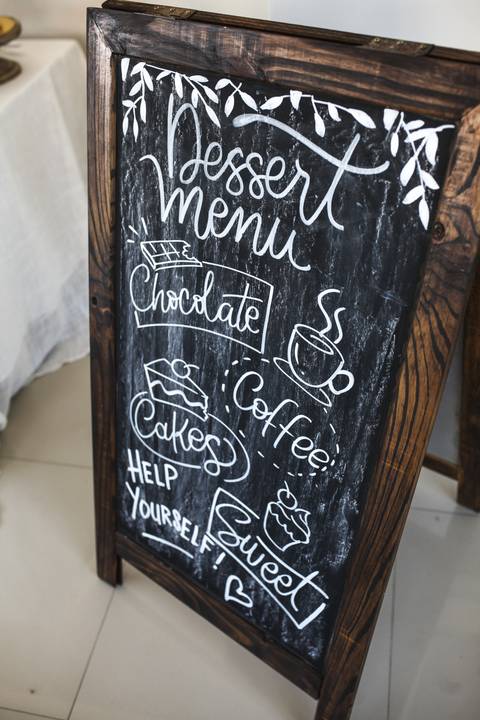 Dessert
menu
Chocolate
Coffee
Cakes
HELP
YOURSELF!
Sweet